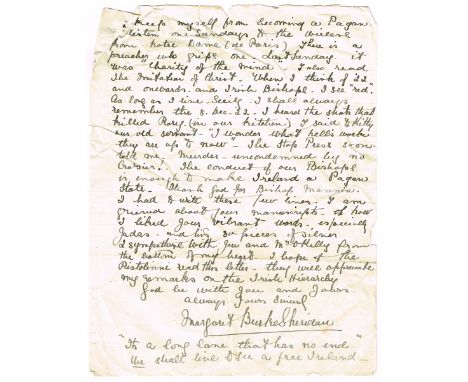 keep myself from becoming a Pagan
listen on Sundays to the wireless
from Notre Dame (de Paris) There is a
preacher who grips one. Last Sunday it
was "Charity of the mind". I also read
The Imitation of Christ. When I think of '22
and onwards and Irish Bishops. I see 'red.
As long as I live I shall always
remember the 8. Dec. 22. I heard the shots that
killed Rory (in our kitchen) I said to Kitty
our old servant "I wonder what hell's work
they are up to now" - The Stop Press soon
told me. Murder - uncondemned by no
Crozier. The conduct of our Bishops
is enough to make Ireland a Pagan
State - Thank God for Bishop Mannix.
I had to write these few lines. I am
grieved about your manuscripts - oh how
I liked your vibrant words - especially
Judas - and his 30 pieces of silver
I sympathise with you and Mrs O'Kelly from
the bottom of my heart. I hope if the
read this letter - they will appreciate
my remarks on the Irish Hierarchy
God be with you and yours
always yours
Margaret Burke Sheridan
"It's a long lane that has no end"
We shall live to see a free Ireland -